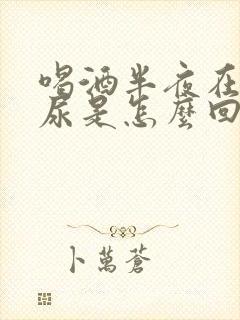 喝酒半夜在
尿是怎麼回
卜萬蒼